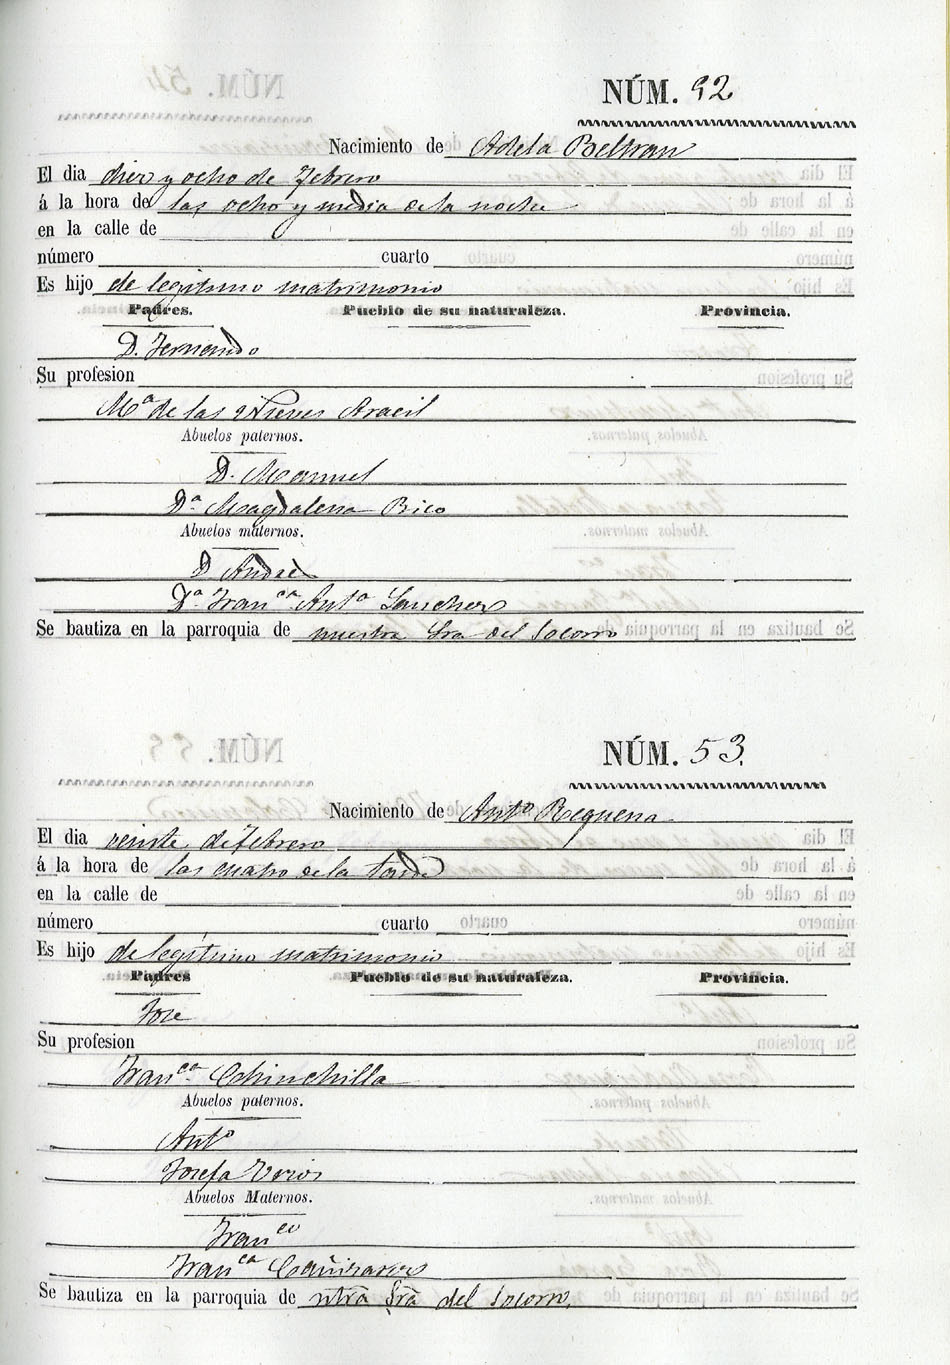 NÚM. 52
Nacimiento de Adela Beltran
El dia diez y ocho de Febrero
á la hora de las ocho y media de la noche
en la calle de
número cuarto
Es hijo de legitimo matrimonio
Padres. Pueblo de su naturaleza. Provincia.
D. Fernando
Su profesion
Mª de las Nieves Aracil
Abuelos paternos.
D. Manuel
Dª Magdalena Rico
Abuelos maternos.
D Andrè
Dª Franca Anta Sanchez
Se bautiza en la parroquia de nuestra Sra del Socorro
NÚM. 53.
Nacimiento de Anto Requena
El dia veinte de febrero
á la hora de las cuatro de la tarde
en la calle de
número cuarto
Es hijo de legitimo matrimonio
Padres Pueblo de su naturaleza. Provincia.
Jose
Su profesion
Franca Chinchilla
Abuelos paternos.
Anto
Josefa
Abuelos Maternos.
Franco
Franca Cañizares
Se bautiza en la parroquia de ntra Sra del Socorro.